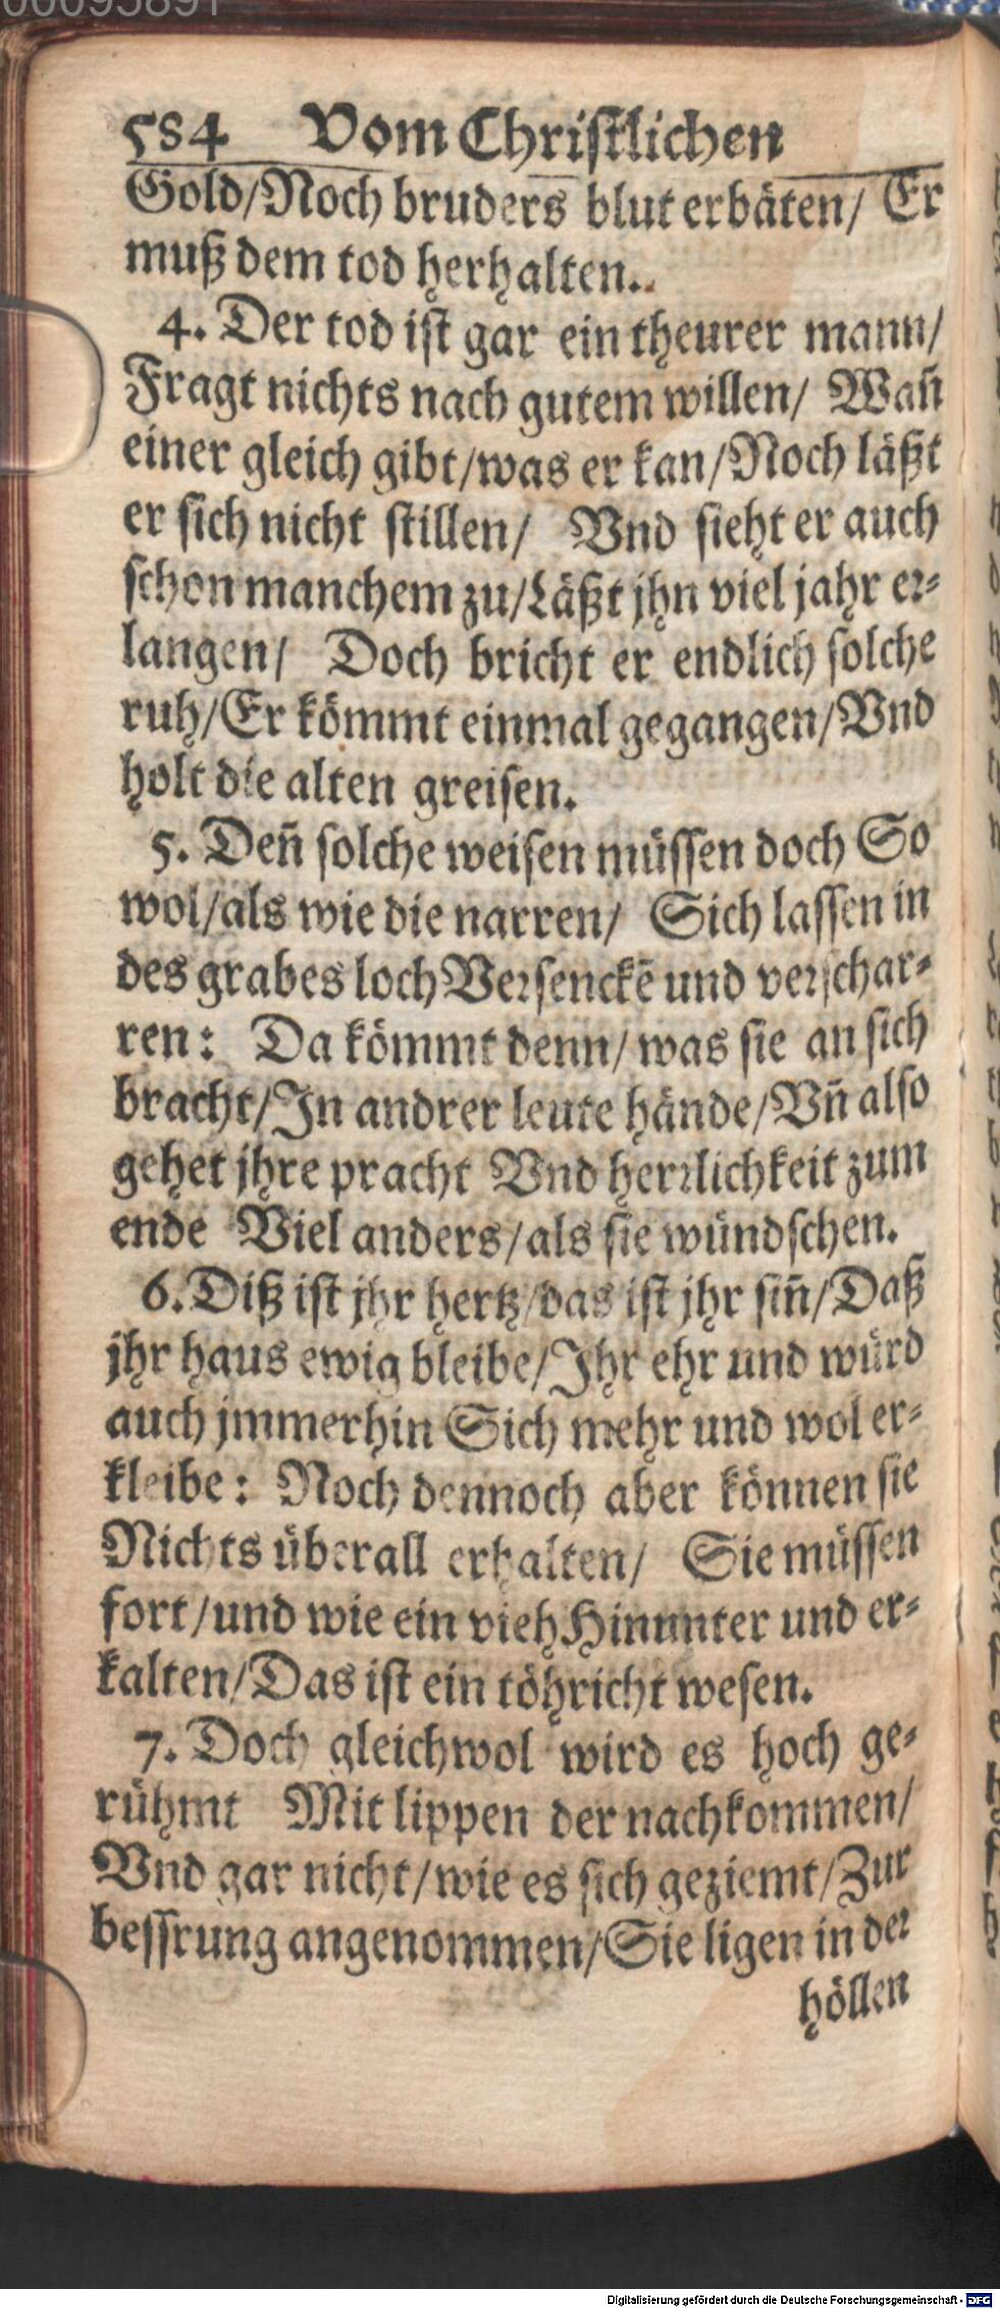 00095891
584 Vom Christlichen
Gold/Noch bruders blut erbäten/ Er
muß dem tod herhalten.
4. Der tod ist gar ein theurer mann/
Fragt nichts nach gutem willen/ Wañ
einer gleich gibt/was er kan/Noch läßt
er sich nicht stillen/ Vnd sieht er auch
schon manchem zu/Läßt jhn viel jahr er-
langen/ Doch bricht er endlich solche
ruh/Er kömmt einmal gegangen/Vnd
holt die alten greisen.
5. Deñ solche weisen müssen doch So
wol/als wie die narren/ Sich lassen in
des grabes loch Versenckẽ und verschar-
ren: Da kömmt denn/was sie an sich
bracht/Jn andrer leute hände/Vñ also
gehet jhre pracht Vnd herrlichkeit zum
ende Viel anders/als sie wündschen.
6. Diß ist jhr hertz/das ist jhr siñ/Daß
jhr haus ewig bleibe/Jhr ehr und würd
auch jmmerhin Sich mehr und wol er-
kleibe: Noch dennoch aber können sie
Nichts überall erhalten/ Sie müssen
fort/und wie ein vieh Hinunter und er-
kalten/Das ist ein töhricht wesen.
7. Doch gleichwol wird es hoch ge-
rühmt Mit lippen der nachkommen/
Vnd gar nicht/wie es sich geziemt/Zur
bessrung angenommen/Sie ligen in der
höllen
Digitalisierung gefördert durch die Deutsche Forschungsgemeinschaft - DFG